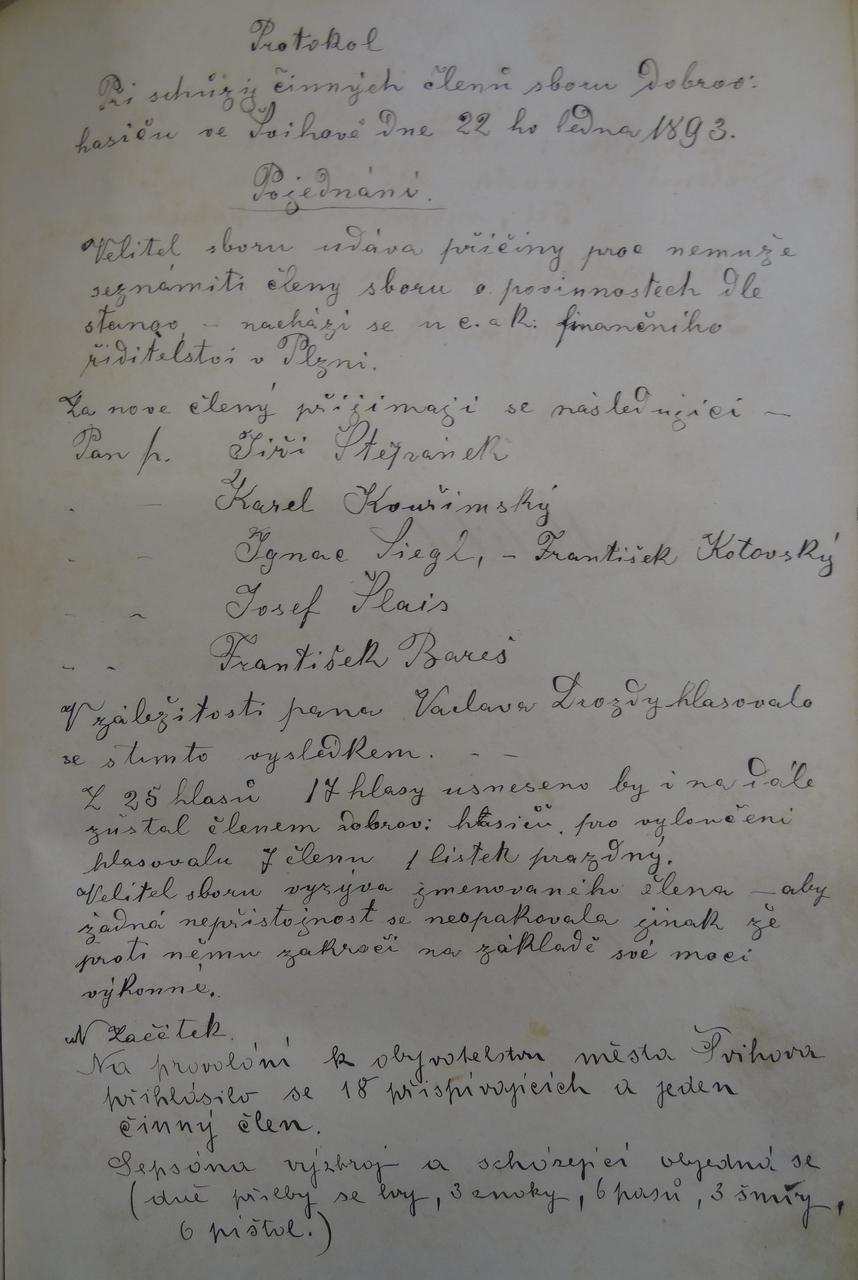 Protokol
Při schůzy činných členů sboru dobrov:
hasičů ve Švihově dne 22 ho ledna 1893.
Pojednání.
Velitel sboru udáva přičiny proc nemuže
seznámiti členy sboru o povinnostech dle
nachází se u c. a k. finančního
řiditelstvi v Plzni.
Za nove člený přijimaji se následujicí —
Pan p. Jiři Štejvánek
" — Karel Kouřimský
" — Ignac Siegl, – František Kotovský
" " Josef Šlais
" " František Bareš
V záležitosti pana Vaclava Drozdy hlasovalo
se stimto vysledkem. - —
Z 25 hlasů 17 hlasy usneseno by i na dále
zůstal členem dobrov: hasičů. pro vyloučeni
hlasovalu 7 členu 1 listek prazdný.
Velitel sboru vyzýva jmenovaného člena — aby
žádná nepřistojnost se neopakovala jinak že
proti němu zakročí na základě své moci
výkonné.
Začétek.
Na provolání k obyvatelstvu města Švihova
přihlásilo se 18 přispívajících a jeden
činný člen.
Sepsána výzbroj a scházející objedná se
(dvě přilby se lvy, 3 znoky, 6 pasů, 3 šnůry,
6 pištol.)